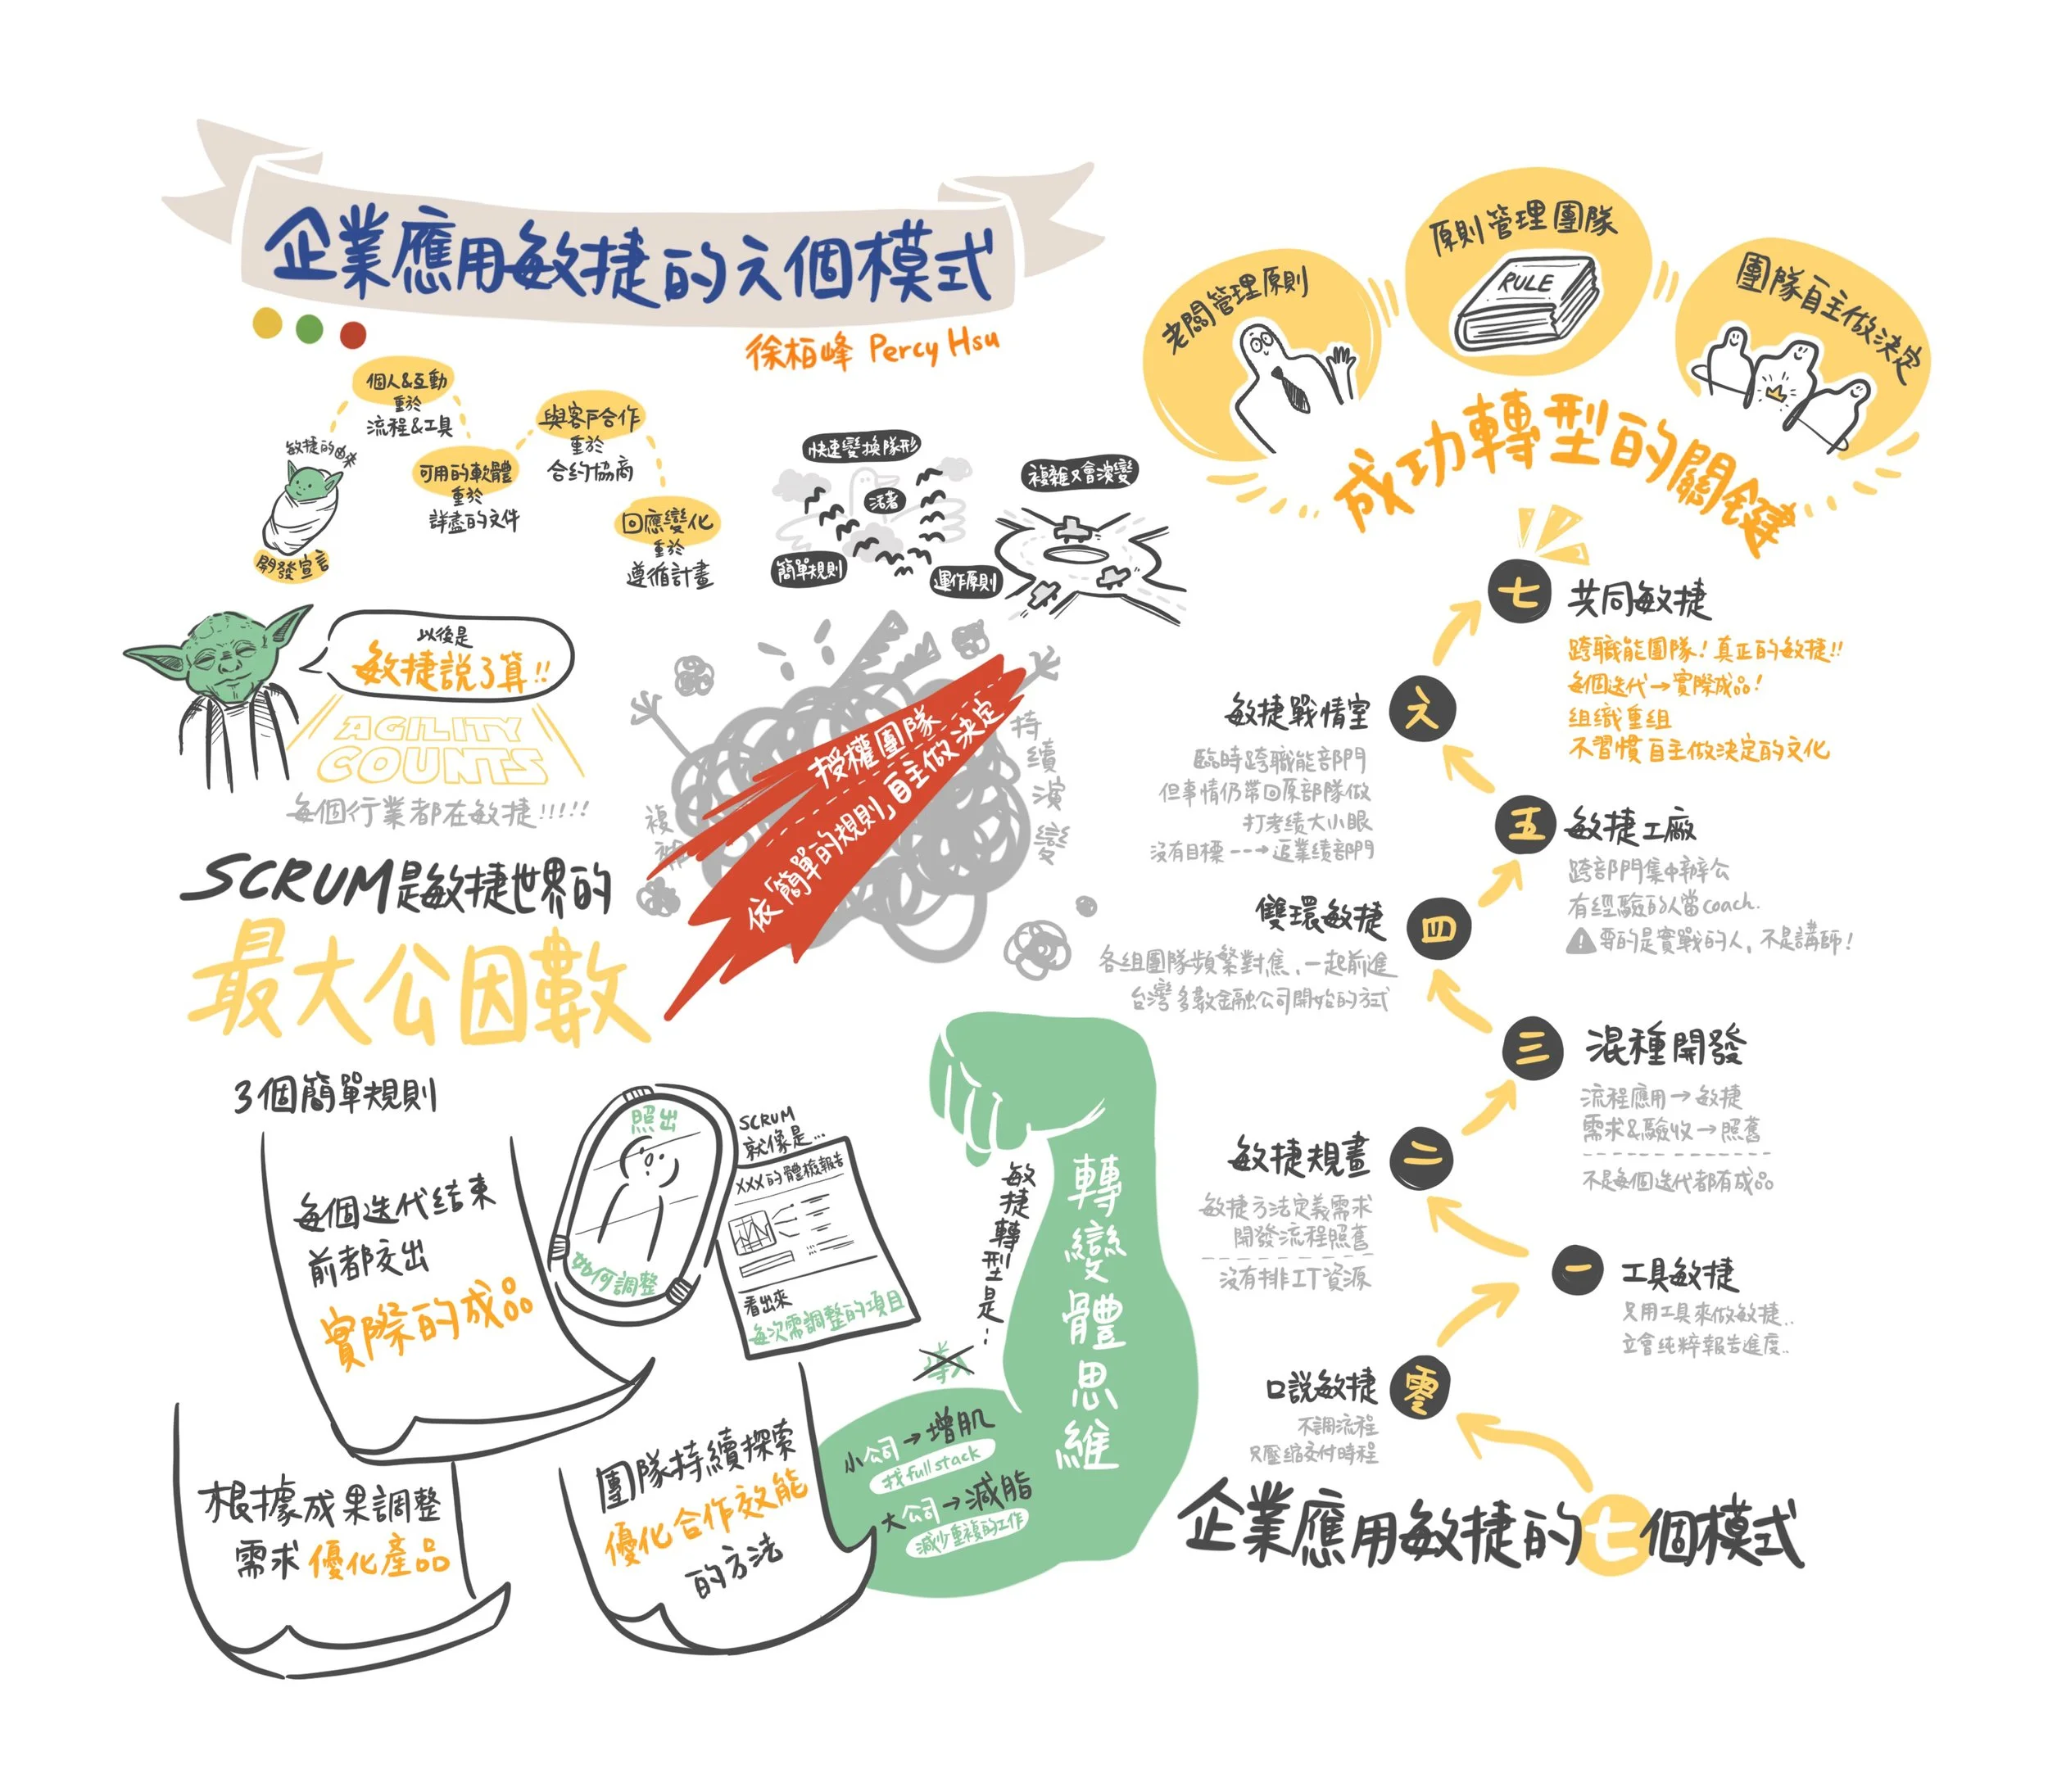 企業應用敏捷的六個模式
徐栢峰 Percy Hsu
敏捷的由來
開發宣言
個人&互動
重於
流程&工具
可用的軟體
重於
詳盡的文件
與客戶合作
重於
合約協商
回應變化
重於
遵循計畫
快速變換隊形
活著
簡單規則
複雜又會演變
運作原則
以後是
敏捷說了算!!
AGILITY
COUNTS
每個行業都在敏捷!!!!!
複雜
持續演變
授權團隊
依「簡單的規則」自主做決定
SCRUM是敏捷世界的
最大公因數
3個簡單規則
每個迭代結束
前都交出
實際的成品
根據成果調整
需求優化產品
團隊持續探索
優化合作效能
的方法
照出
如何調整
SCRUM
就像是...
XXX的體檢報告
看出來
每次需調整的項目
敏捷轉型是:
導入
轉變體思維
小公司→增肌
找full stack
大公司→減脂
減少重複的工作
老闆管理原則
原則管理團隊
RULE
團隊自主做決定
成功轉型的關鍵
七 共同敏捷
跨職能團隊!真正的敏捷!!
每個迭代→實際成品!
組織重組
不習慣自主做決定的文化
六 敏捷戰情室
臨時跨職能部門
但事情仍帶回原部隊做
打考績大小眼
沒有目標--→返業績部門
五 敏捷工廠
跨部門集中辦公
有經驗的人當coach.
要的是實戰的人,不是講師!
四 雙環敏捷
各組團隊頻繁對焦、一起前進
台灣多數金融公司開始的方式
三 混種開發
流程應用→敏捷
需求&驗收→照舊
不是每個迭代都有成品
二 敏捷規畫
敏捷方法定義需求
開發流程照舊
沒有排IT資源
一 工具敏捷
只用工具來做敏捷..
立會純粹報告進度..
零 口說敏捷
不調流程
只壓縮交付時程
企業應用敏捷的七個模式